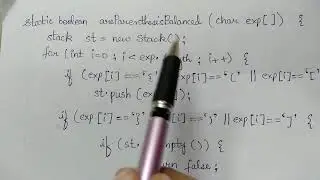 static boolean areParenthesisBalanced (char exp[]) {
stack st = new Stack();
for (int i=0; i< exp. th ; i++) {
if (exp[i] == '{' exp[i] == '[' {
st. push (exp[i]);
if (exp[i] == '}' [i] == ')' || exp[i] == ']' {
if (st. empty ()) {
false;